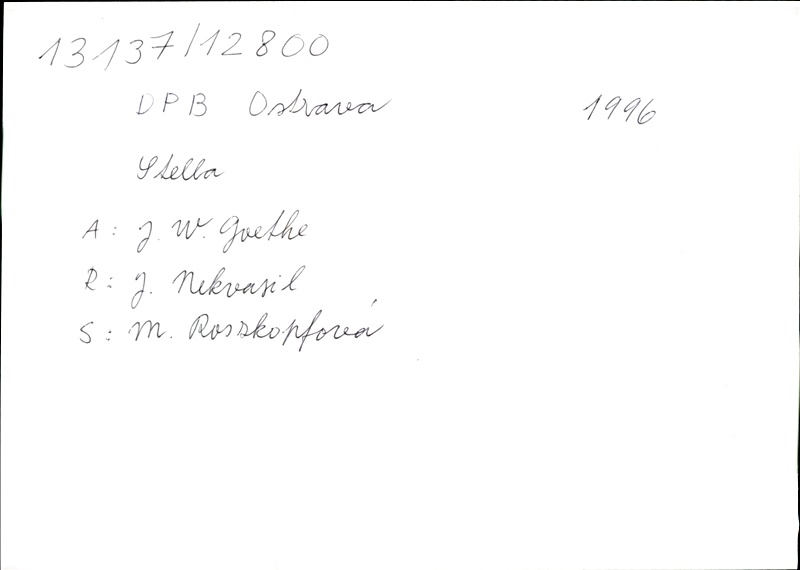 13137/12800
DPB Ostrava 1996
Stella
A: J. W. Goethe
R: J. Nekvasil
S: M. Roszkopfová